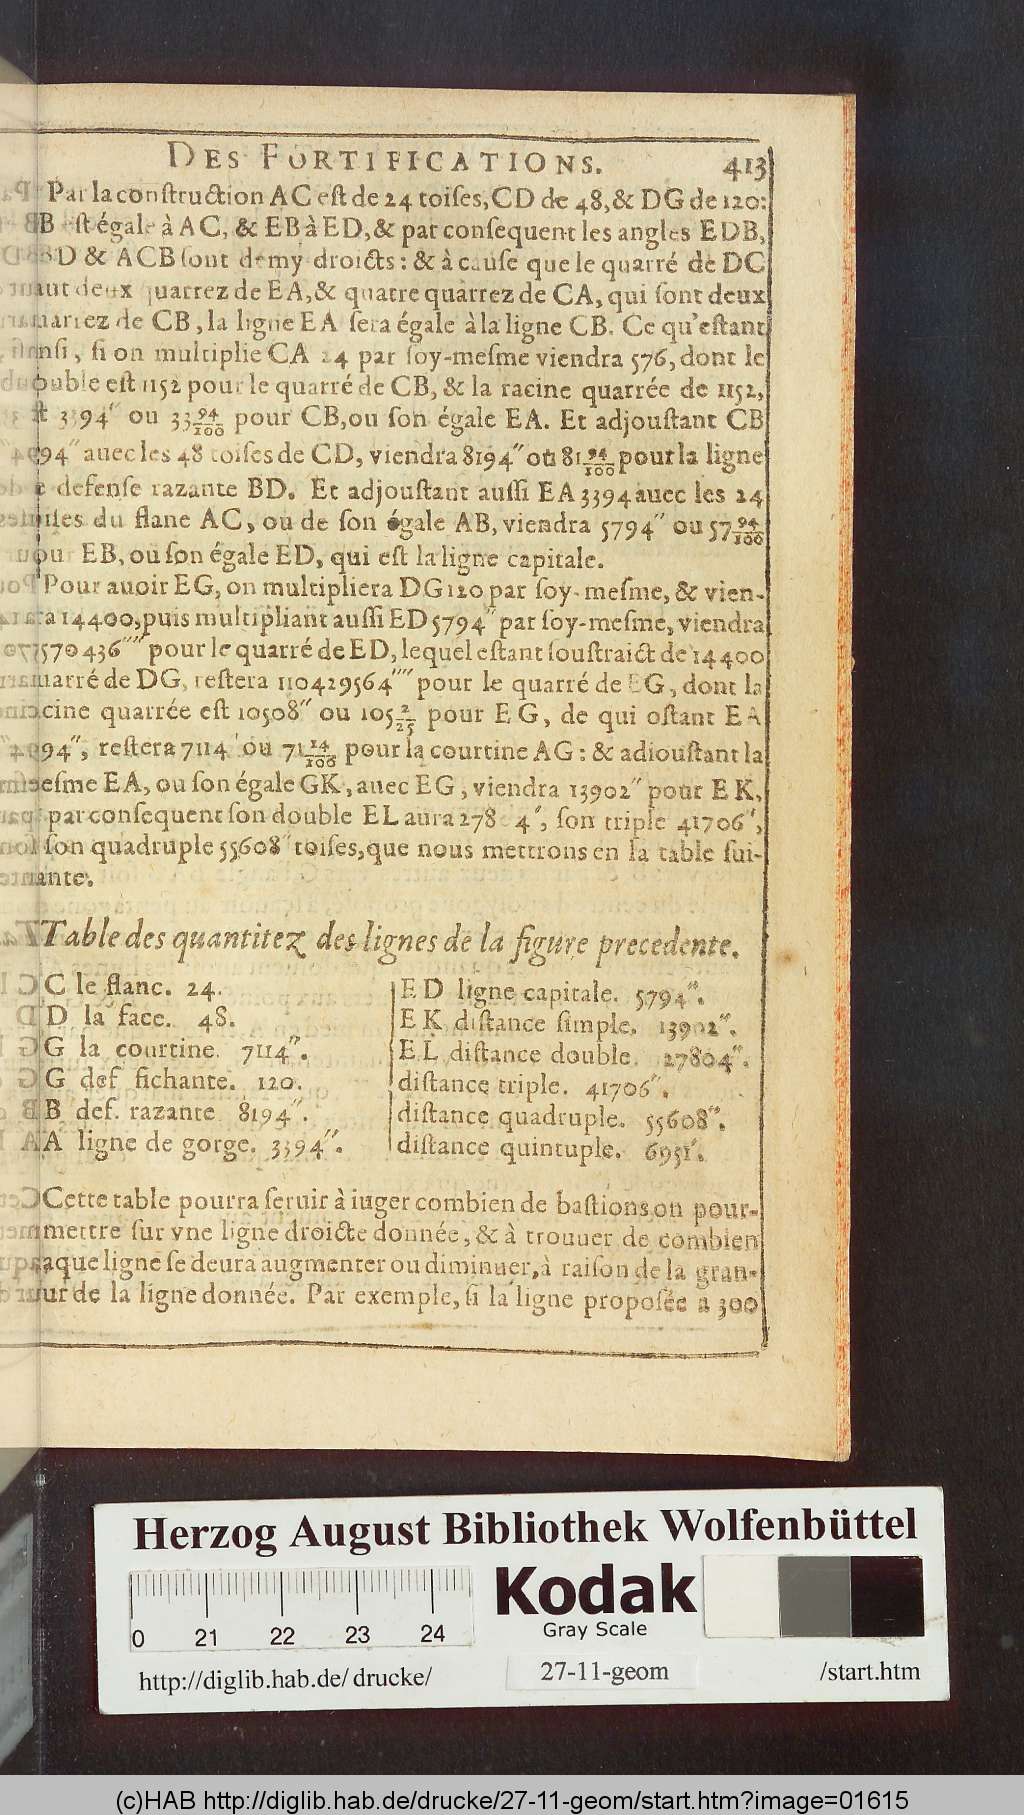 DES FORTIFICATIONS. 413
Par la construction AC est de 24 toises, CD de 48, & DG de 120:
B est égale à AC, & EB à ED, & par consequent les angles EDB,
BD & ACB sont demy droicts: & à cause que le quarré de DC
aut deux quarrez de EA, & quatre quarrez de CA, qui sont deux
uarrez de CB, la ligne EA sera égale à la ligne CB. Ce qu'estant
nsi, si on multiplie CA 24 par soy-mesme viendra 576, dont le
ouble est 1152 pour le quarré de CB, & la racine quarrée de 1152,
st 3394″ ou 33 94/100 pour CB, ou son égale EA. Et adjoustant CB
94″ auec les 48 toises de CD, viendra 8194″ ou 81 94/100 pour la ligne
e defense razante BD. Et adjoustant aussi EA 3394 auec les 24
oises du flanc AC, ou de son égale AB, viendra 5794″ ou 57 94/100
our EB, ou son égale ED, qui est la ligne capitale.
Pour auoir EG, on multipliera DG 120 par soy-mesme, & vien-
ra 14400, puis multipliant aussi ED 5794″ par soy-mesme, viendra
570436″″ pour le quarré de ED, lequel estant soustraict de 14400
uarré de DG, restera 110429564″″ pour le quarré de EG, dont la
cine quarrée est 10508″ ou 105 2/25 pour EG, de qui ostant EA
94″, restera 7114″ ou 71 14/100 pour la courtine AG: & adioustant la
esme EA, ou son égale GK, auec EG, viendra 13902″ pour EK,
par consequent son double EL aura 278 4″, son triple 41706″,
son quadruple 55608″ toises, que nous mettrons en la table sui-
ante.
Table des quantitez des lignes de la figure precedente.
C le flanc. 24.
D la face. 48.
G la courtine. 7114″.
G def fichante. 120.
B def. razante 8194″.
A ligne de gorge. 3394″.
ED ligne capitale. 5794″.
EK distance simple. 13902″.
EL distance double. 27804″.
distance triple. 41706″.
distance quadruple. 55608″.
distance quintuple. 6951′.
Cette table pourra seruir à iuger combien de bastions on pour-
mettre sur vne ligne droicte donnée, & à trouuer de combien
aque ligne se deura augmenter ou diminuer, à raison de la gran-
ur de la ligne donnée. Par exemple, si la ligne proposée a 300
Herzog August Bibliothek Wolfenbüttel
0 21 22 23 24
Kodak
Gray Scale
http://diglib.hab.de/drucke/ 27-11-geom /start.htm
(c)HAB http://diglib.hab.de/drucke/27-11-geom/start.htm?image=01615